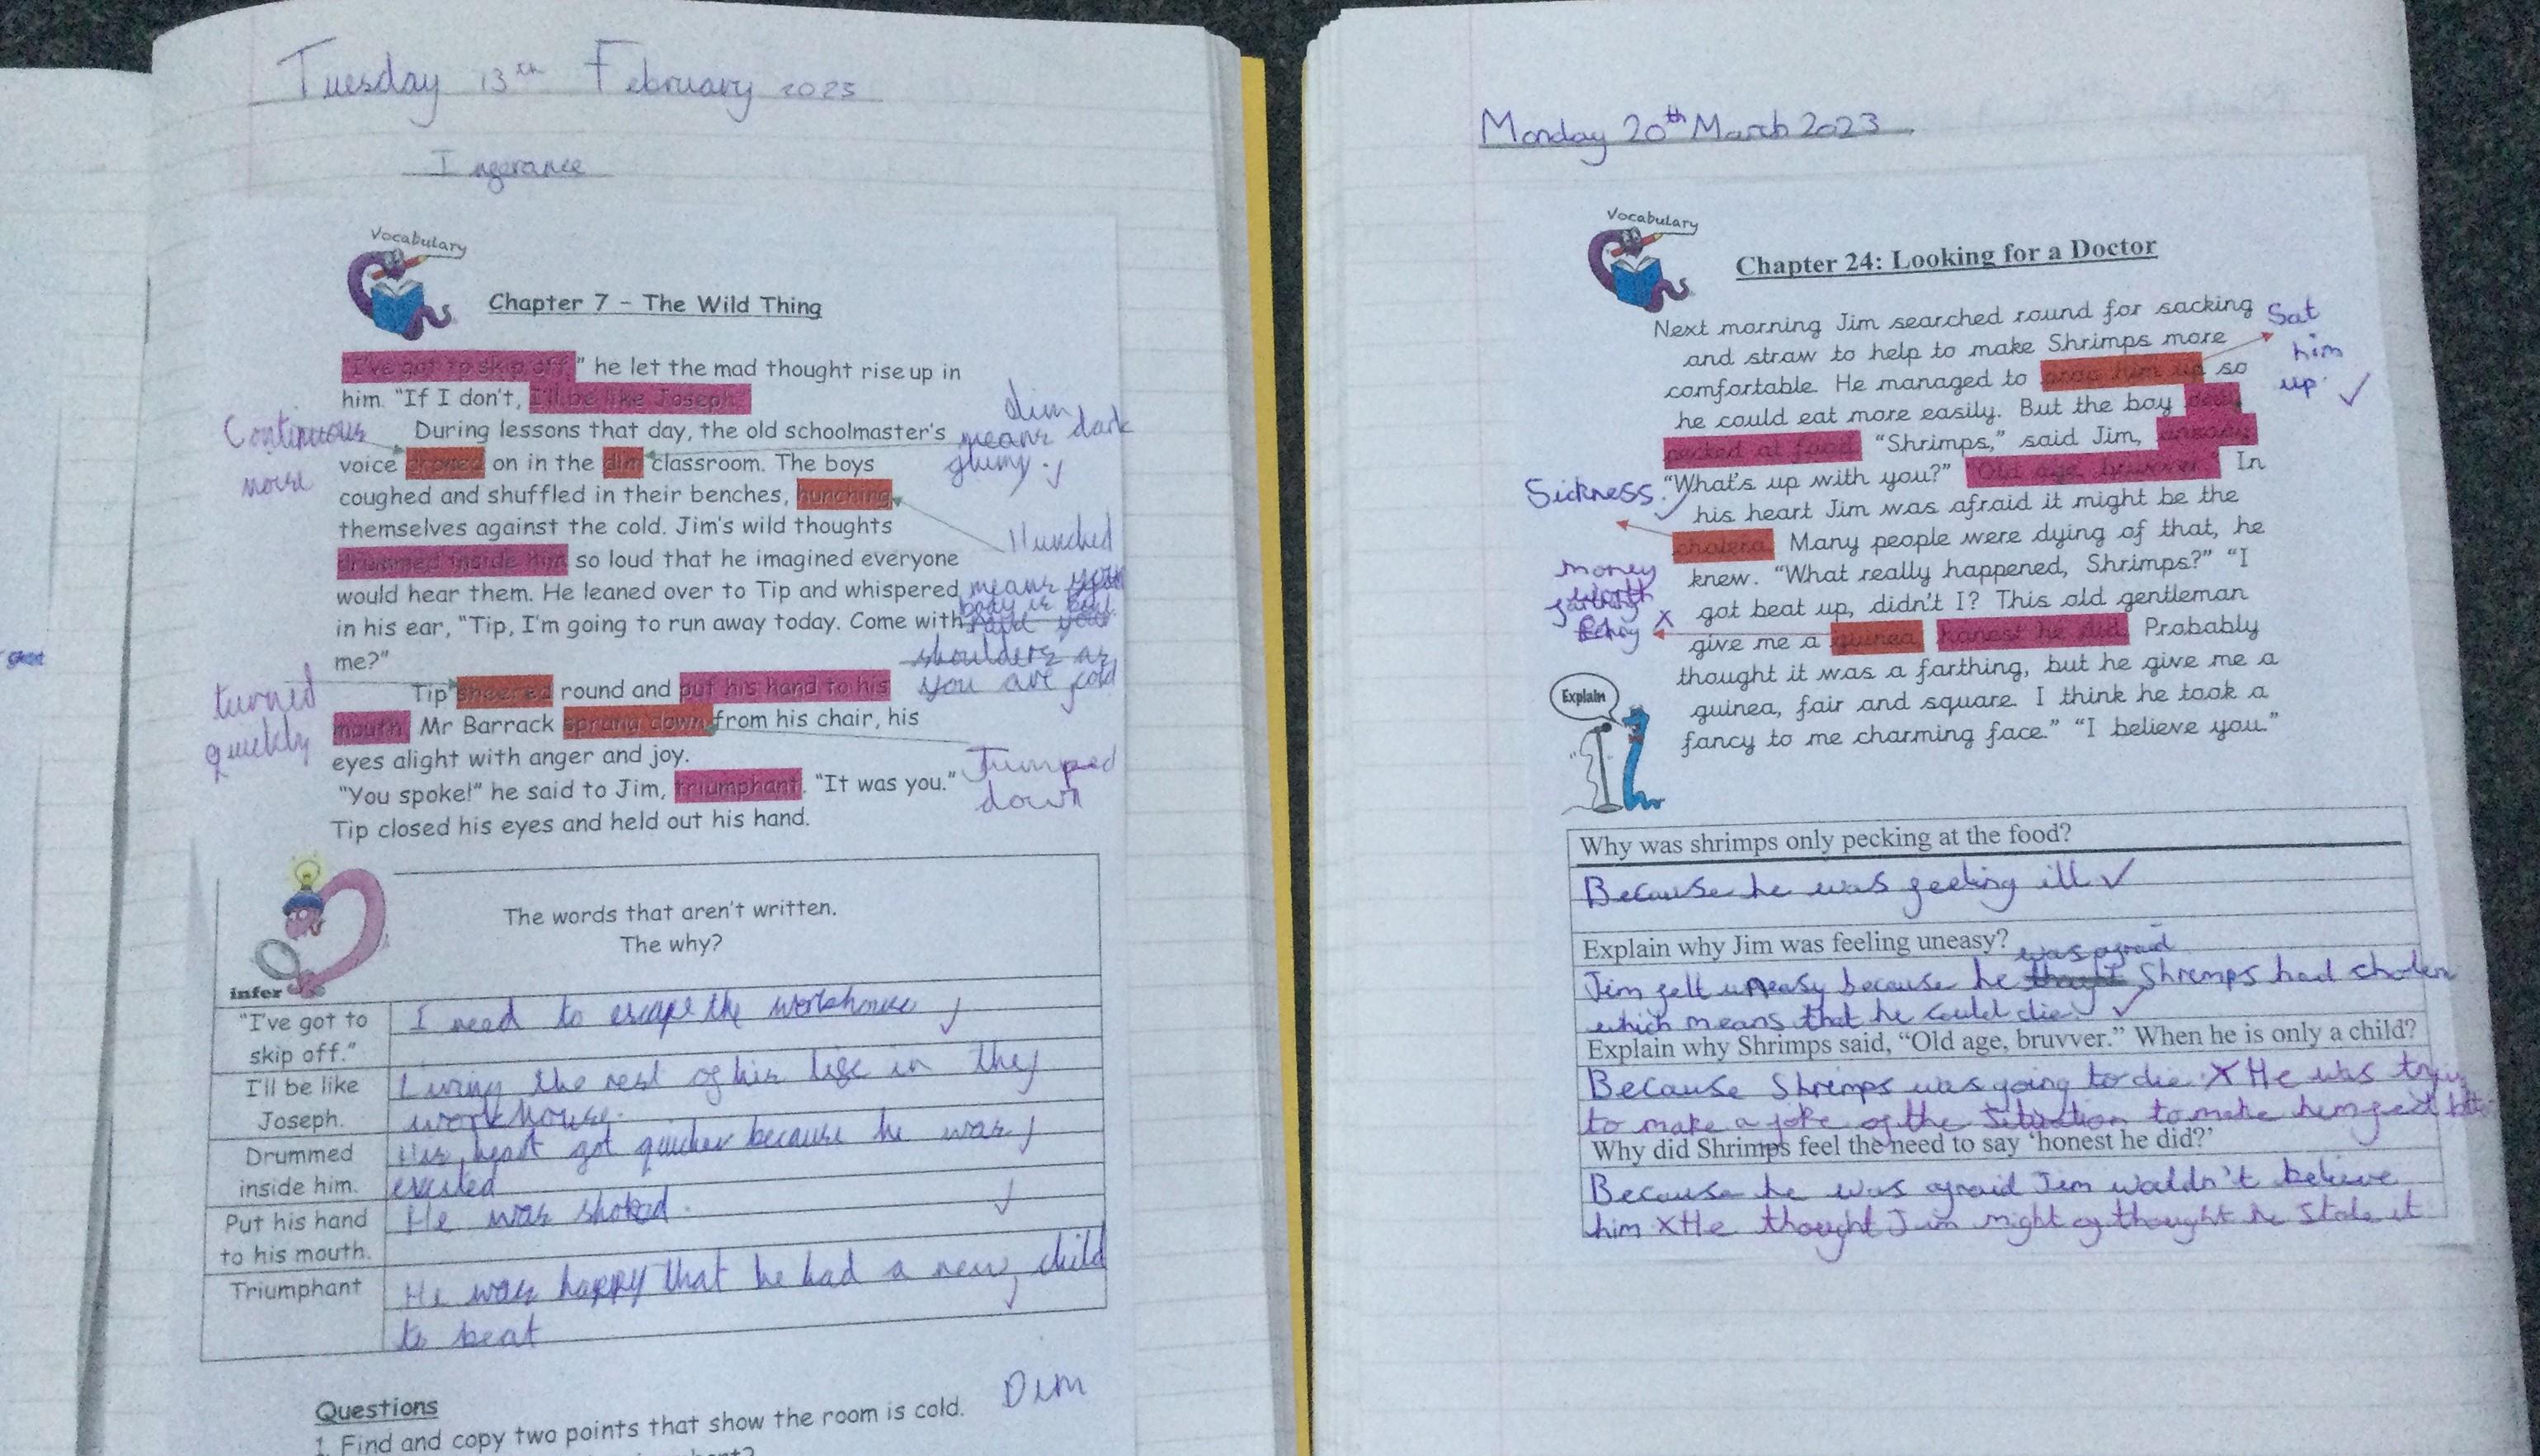 Tuesday 13th February 2023
Ingerance
Vocabulary
Chapter 7 – The Wild Thing
"I've got to skip off," he let the mad thought rise up in
him. "If I don't, I'll be like Joseph."
During lessons that day, the old schoolmaster's
voice droned on in the dim classroom. The boys
coughed and shuffled in their benches, hunching
themselves against the cold. Jim's wild thoughts
drummed inside him so loud that he imagined everyone
would hear them. He leaned over to Tip and whispered
in his ear, "Tip, I'm going to run away today. Come with
me?"
Tip sheered round and put his hand to his
mouth. Mr Barrack sprang down from his chair, his
eyes alight with anger and joy.
"You spoke!" he said to Jim, triumphant. "It was you."
Tip closed his eyes and held out his hand.
Continuous
noise
turned
quickly
dim
means dark
glumy.
Hunched
means your
body is
shoulders as
you are cold
Jumped
down
infer
The words that aren't written.
The why?
"I've got to
skip off."
I need to escape the workhouse
I'll be like
Joseph.
Living the rest of his life in the
workhouse.
Drummed
inside him.
His heart got quicker because he was
excited
Put his hand
to his mouth.
He was shoked.
Triumphant
He was happy that he had a new child
to beat
Dim
Questions
1. Find and copy two points that show the room is cold.
Monday 20th March 2023
Vocabulary
Chapter 24: Looking for a Doctor
Next morning Jim searched round for sacking
and straw to help to make Shrimps more
comfortable. He managed to prop him up so
he could eat more easily. But the boy only
pecked at food. "Shrimps," said Jim, uneasily.
"What's up with you?" "Old age, bruvver." In
his heart Jim was afraid it might be the
cholera. Many people were dying of that, he
knew. "What really happened, Shrimps?" "I
got beat up, didn't I? This old gentleman
give me a guinea, honest he did. Probably
thought it was a farthing, but he give me a
guinea, fair and square. I think he took a
fancy to me charming face." "I believe you."
Sat
him
up.
Sickness.
money
worth
farthing
Explain
Why was shrimps only pecking at the food?
Because he was feeling ill
Explain why Jim was feeling uneasy?
was afraid
Jim felt uneasy because he thought Shremps had
which means that he could die
Explain why Shrimps said, "Old age, bruvver." When he is only a child?
Because Shremps was going to die. X He was
to make a joke of the situation to make him feel
Why did Shrimps feel the need to say 'honest he did?'
Because he was afraid Jim waldn't believe
him X He thought Jim might of thought he stole it